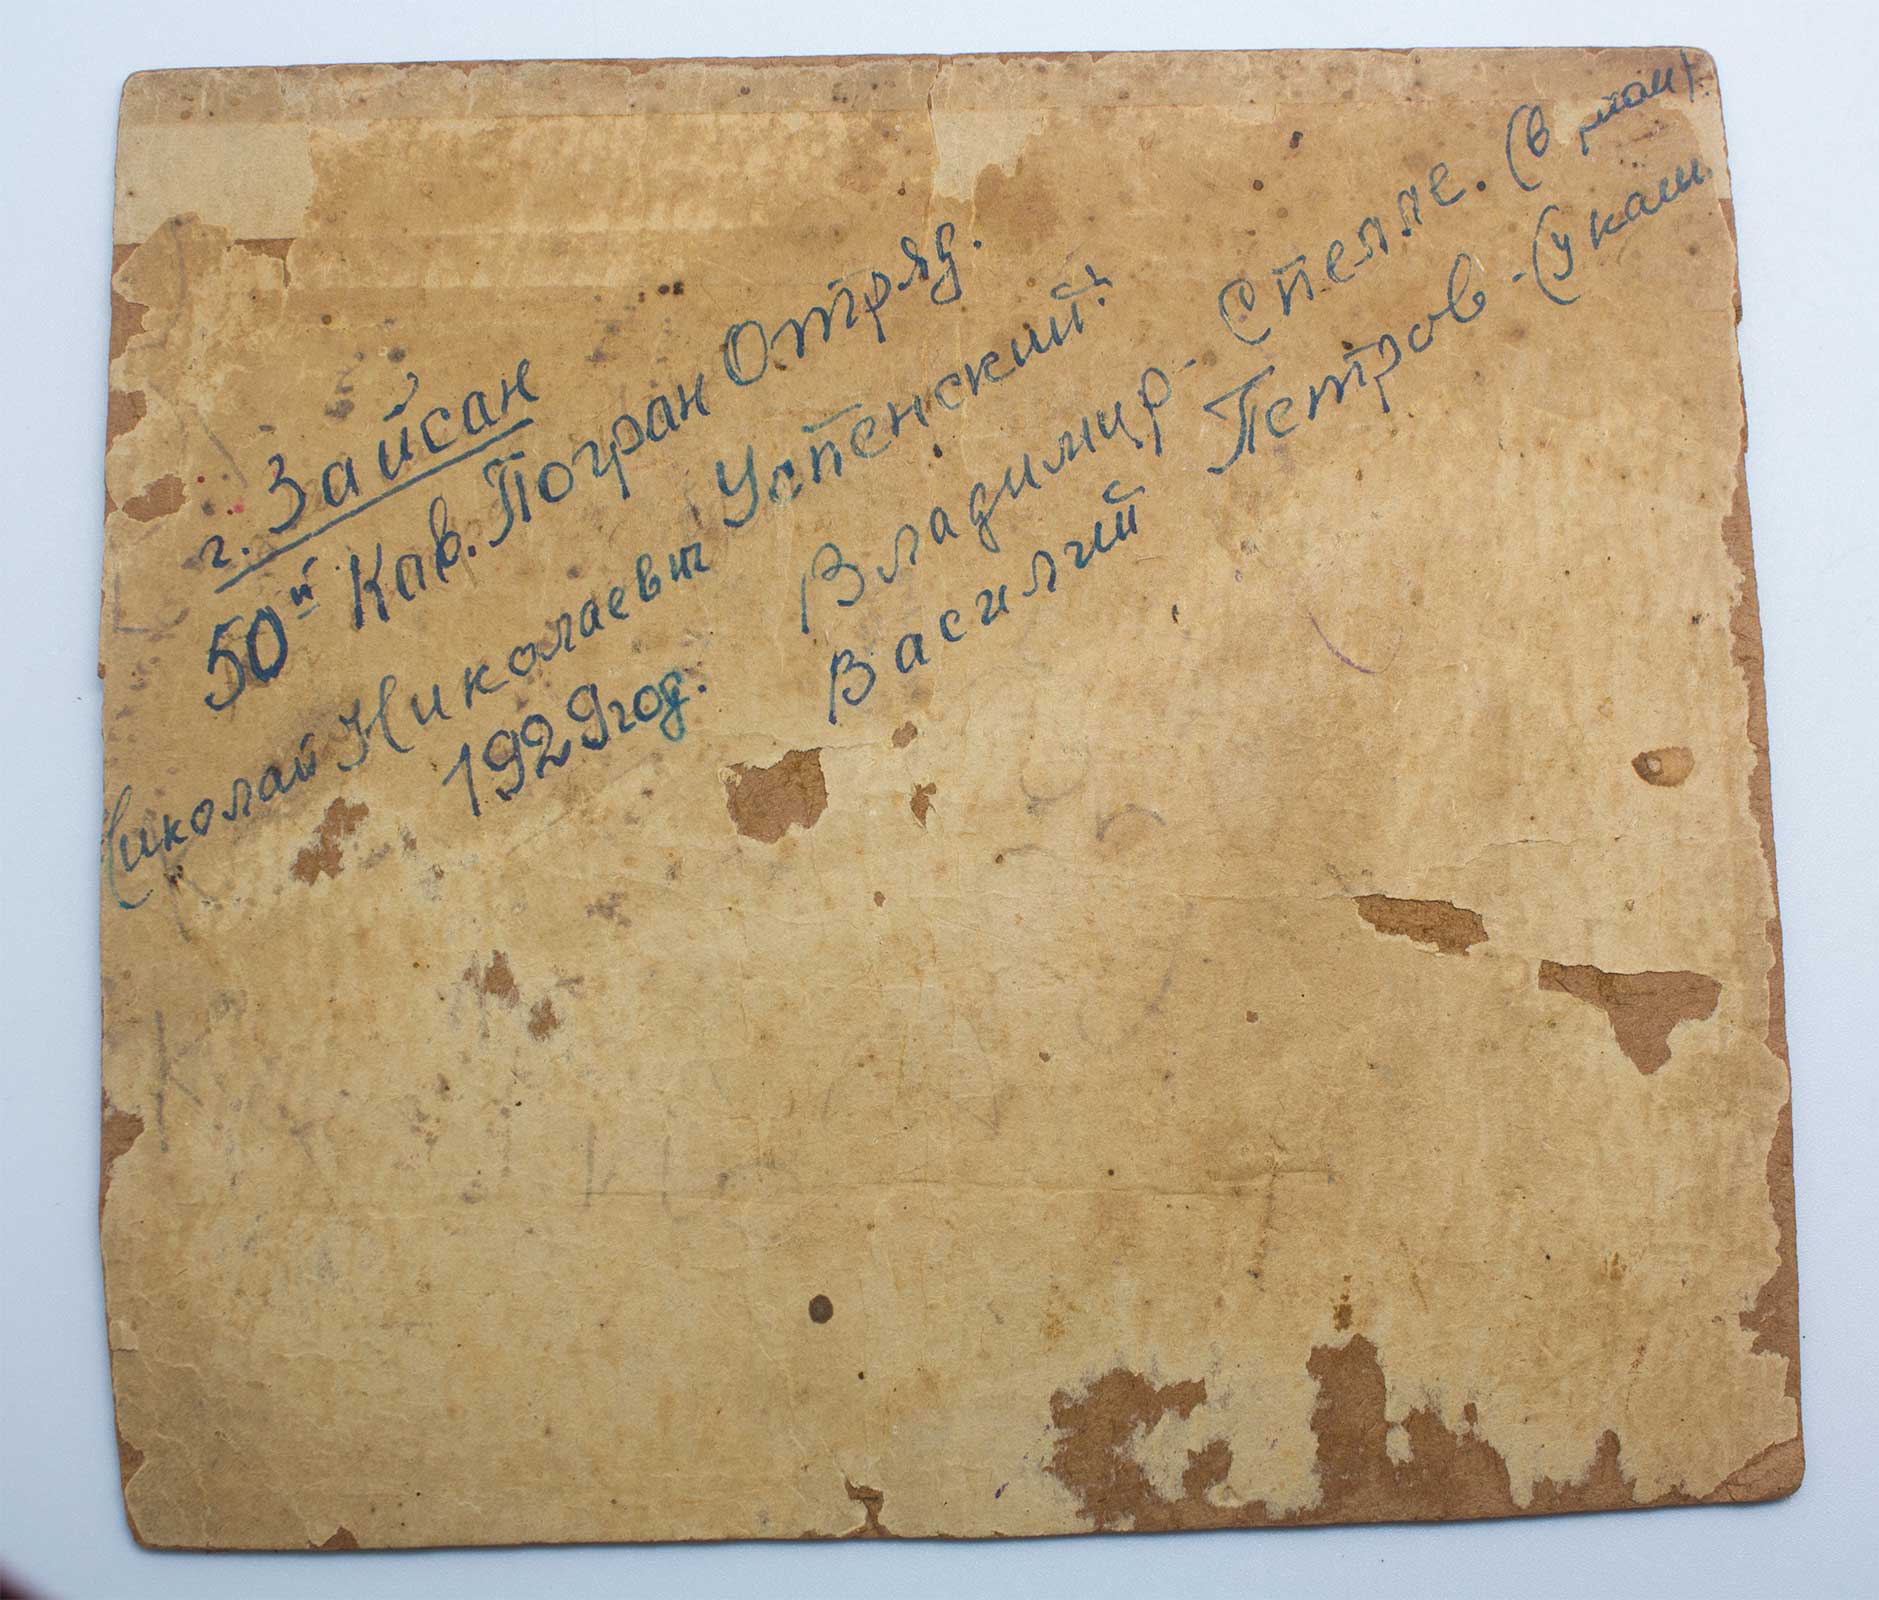 г. Зайсан
50й Кав. Погран Отряд.
Николай Николаевич Успенский.
1929 год.
Владимир - Спелле. (в
Василий Петров - (у каш.